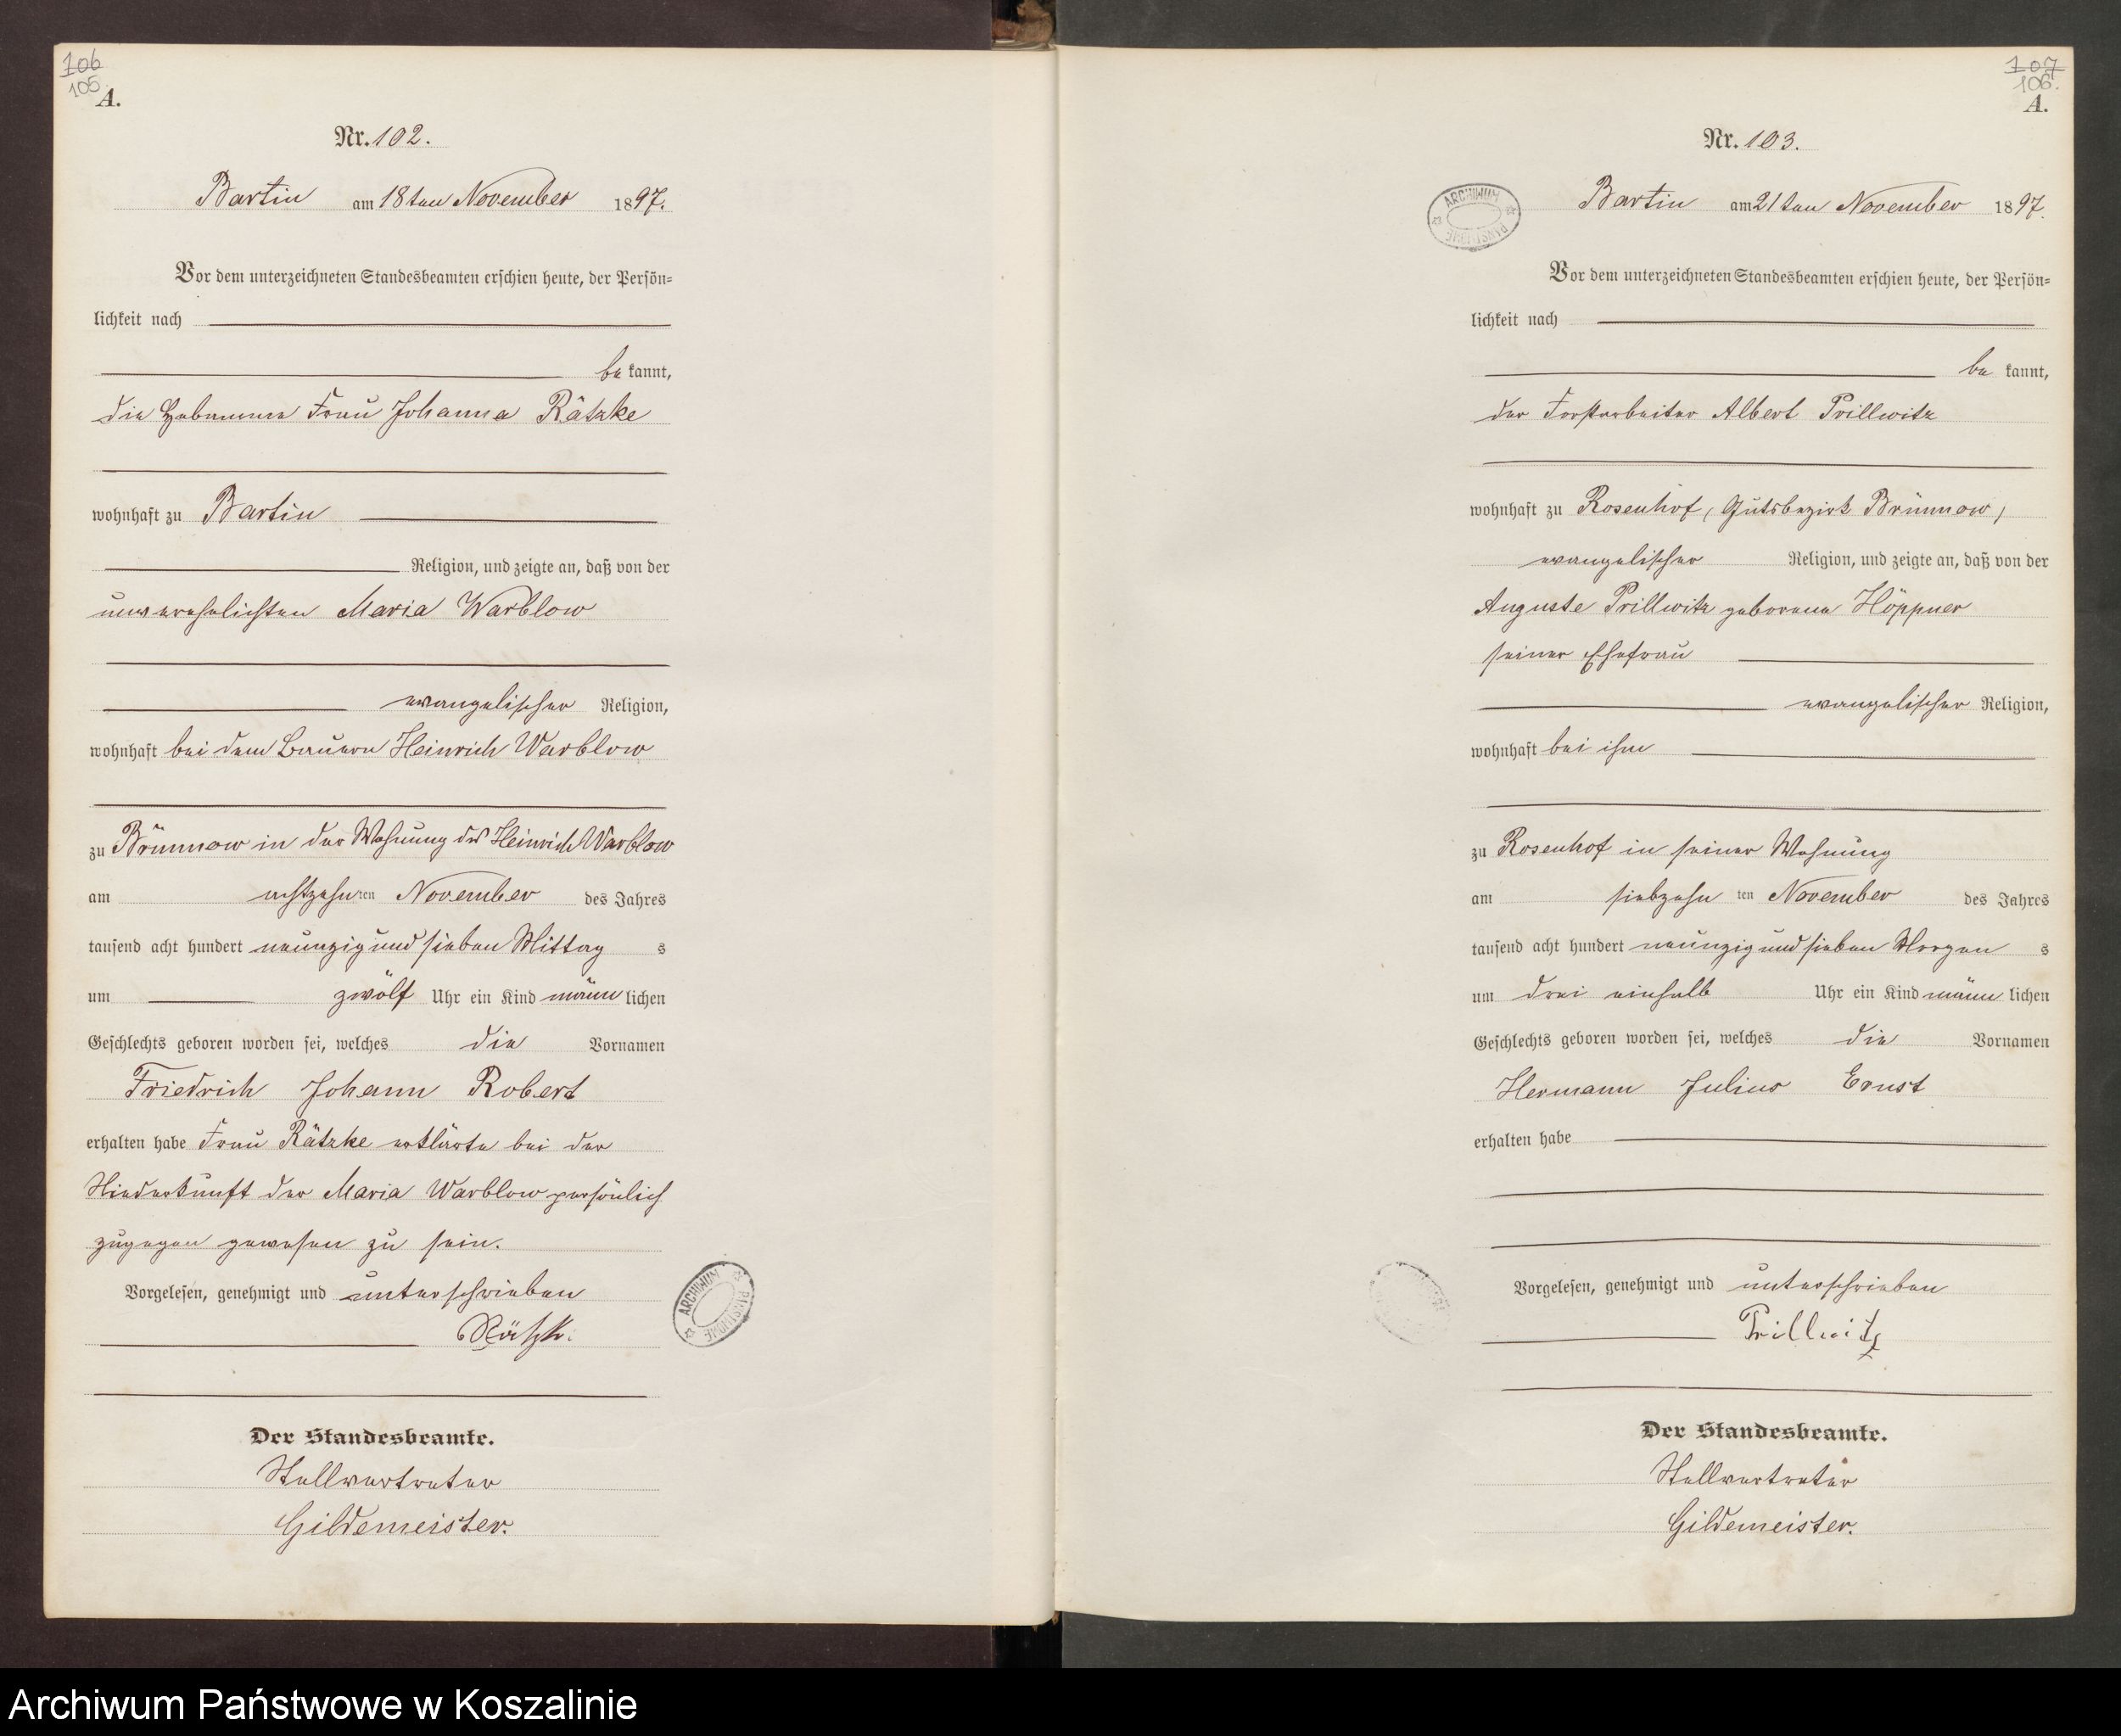 106
105
A.
Nr. 102.
Bartin am 18ten November 1897.
Vor dem unterzeichneten Standesbeamten erschien heute, der Persön-
lichkeit nach
be kannt,
die Hebamme Frau Johanna Rätzke
wohnhaft zu Bartin
Religion, und zeigte an, daß von der
unverehelichten Maria Warblow
evangelischer Religion,
wohnhaft bei dem Bauern Heinrich Warblow
zu Brünnow in der Wohnung des Heinrich Warblow
am achtzehn ten November des Jahres
tausend acht hundert neunzig und sieben Mittag s
um zwölf Uhr ein Kind männ lichen
Geschlechts geboren worden sei, welches die Vornamen
Friedrich Johann Robert
erhalten habe Frau Rätzke erklärte bei der
Niederkunft der Maria Warblow persönlich
zugegen gewesen zu sein.
Vorgelesen, genehmigt und unterschrieben
Rätzke.
Der Standesbeamte.
Stellvertreter
Gildemeister.
ARCHIWUM PAŃSTWOWE
107
106.
A.
Nr. 103.
ARCHIWUM PAŃSTWOWE
Bartin am 21ten November 1897.
Vor dem unterzeichneten Standesbeamten erschien heute, der Persön-
lichkeit nach
be kannt,
der Forstarbeiter Albert Prillwitz
wohnhaft zu Rosenhof, (Gutsbezirk Brünnow)
evangelischer Religion, und zeigte an, daß von der
Auguste Prillwitz geborene Höppner
seiner Ehefrau
evangelischer Religion,
wohnhaft bei ihm
zu Rosenhof in seiner Wohnung
am siebzehn ten November des Jahres
tausend acht hundert neunzig und sieben Morgen s
um drei einhalb Uhr ein Kind männ lichen
Geschlechts geboren worden sei, welches die Vornamen
Hermann Julius Ernst
erhalten habe
Vorgelesen, genehmigt und unterschrieben
Prillwitz
Der Standesbeamte.
Stellvertreter
Gildemeister.
Archiwum Państwowe w Koszalinie